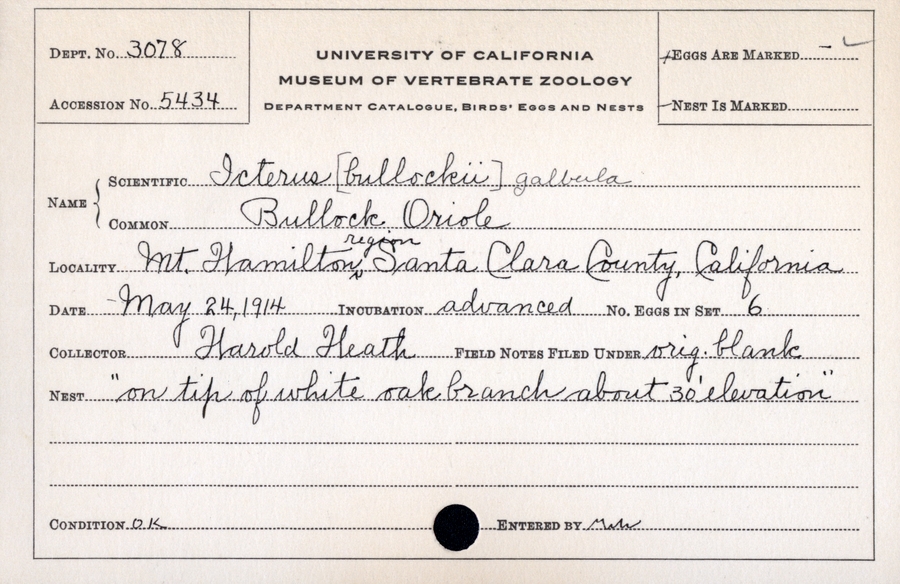 DEPT. No. 3078
ACCESSION No. 5434
UNIVERSITY OF CALIFORNIA
MUSEUM OF VERTEBRATE ZOOLOGY
DEPARTMENT CATALOGUE, BIRDS' EGGS AND NESTS
EGGS ARE MARKED -
NEST IS MARKED
NAME
SCIENTIFIC Icterus [bullockii] galbula
COMMON Bullock Oriole
region
LOCALITY Mt. Hamilton, Santa Clara County, California
DATE May 24, 1914 INCUBATION advanced NO. EGGS IN SET 6
COLLECTOR Harold Heath FIELD NOTES FILED UNDER orig. blank
NEST "on tip of white oak branch about 30' elevation"
CONDITION OK ENTERED BY